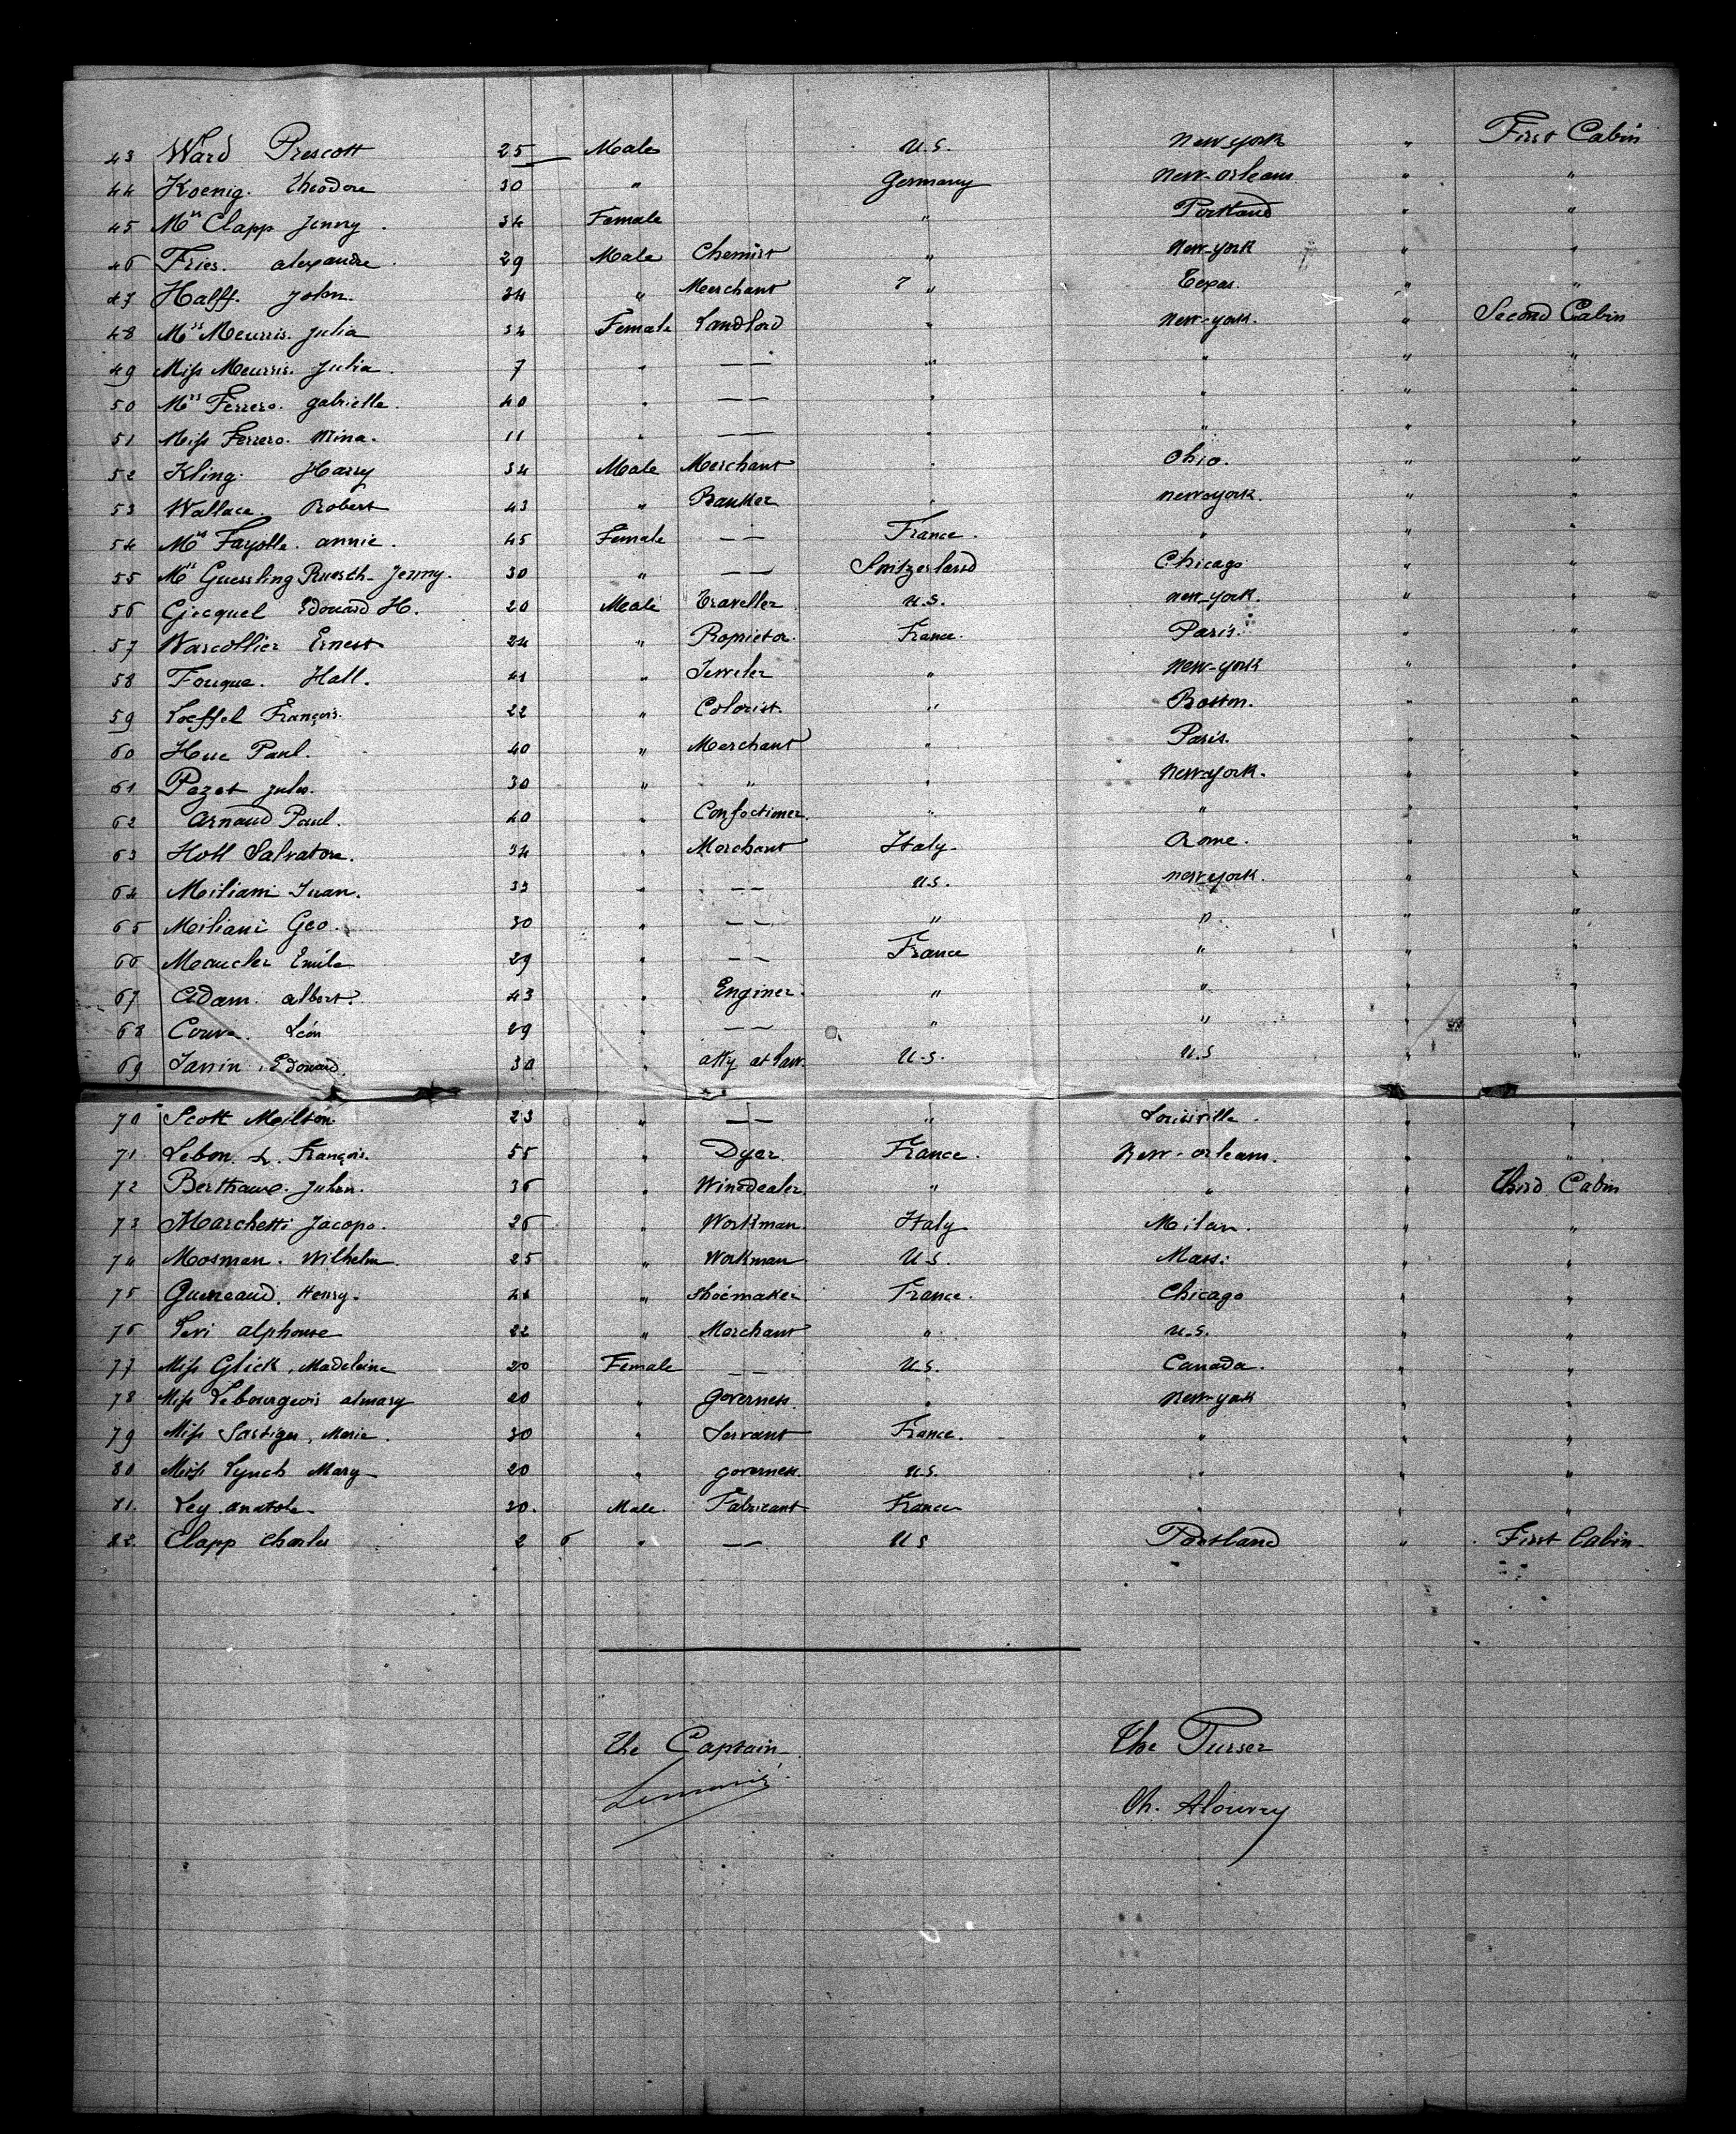 43 Ward Prescott 25 Male U.S. New york " First Cabin
44 Koenig. theodore 30 " Germany New-orleans " "
45 Mrs Clapp Jenny. 34 Female " Portland " "
46 Fries. alexandre. 29 Male Chemist " New-york " "
47 Halff. John. 34 " Merchant " Texas. " "
48 Mrs Meurris. Julia 34 Female Landlord " New-york. " Second Cabin
49 Miss Meurris. Julia. 7 " —— " " " "
50 Mrs Ferrero. gabrielle. 40 " —— " " " "
51 Miss Ferrero. Nina. 11 " —— " " " "
52 Kling. Harry 34 Male Merchant " Ohio. " "
53 Wallace. Robert 43 " Banker " new-york. " "
54 Mrs Fayolle. annie. 45 Female —— France. " " "
55 Mrs Guessling Ruesch-Jenny. 30 " —— Switzerland Chicago " "
56 Gicquel Edouard H. 20 Male Traveller U.S. new-york. " "
57 Warcollier Ernest 24 " Proprietor. France. Paris. " "
58 Fouque. Hall. 41 " Jeweler " New-york " "
59 Loeffel François. 22 " Colorist. " Boston. " "
60 Hue Paul. 40 " Merchant " Paris. " "
61 Pezet Jules. 30 " " " New-york. " "
62 Arnaud Paul. 40 " Confectioner. " " " "
63 Holl Salvatore. 34 " Merchant Italy. Rome. " "
64 Miliani Juan. 33 " —— U.S. new-york. " "
65 Miliani Geo. 30 " —— " " " "
66 Maucler Emile 29 " —— France " " "
67 Adam. albert. 43 " Enginer. " " " "
68 Couve. Léon 29 " —— " " " "
69 Janin. Edouard. 30 " atty at law. U.S. U.S " "
70 Scott Milton 23 " —— " Louisville. " "
71 Lebon. L. François. 55 " Dyer. France. New-orleans. " "
72 Julien. 36 " Winedealer. " " " third Cabin
73 Marchetti Jacopo. 26 " Workman. Italy Milan. " "
74 Mosman. Wilhelm. 25 " Workman U.S. Mass: " "
75 Henry. " Shoemaker. France. Chicago " "
76 Levi alphonse 22 " Merchant " U.S. " "
77 Miss Glick, Madeleine 20 Female —— U.S. Canada. " "
78 Miss Lebourgeois almary 20 " governess. " New-york " "
79 Miss Sartiges, Marie. 30 " Servant France. " " "
80 Miss Lynch Mary 20 " governess. U.S. " " "
81. Ley anatole. 30. Male. Fabricant France " " "
82. Clapp Charles 2 6 " —— U S Portland " First Cabin
the Captain The Purser
Ch. Alouvry